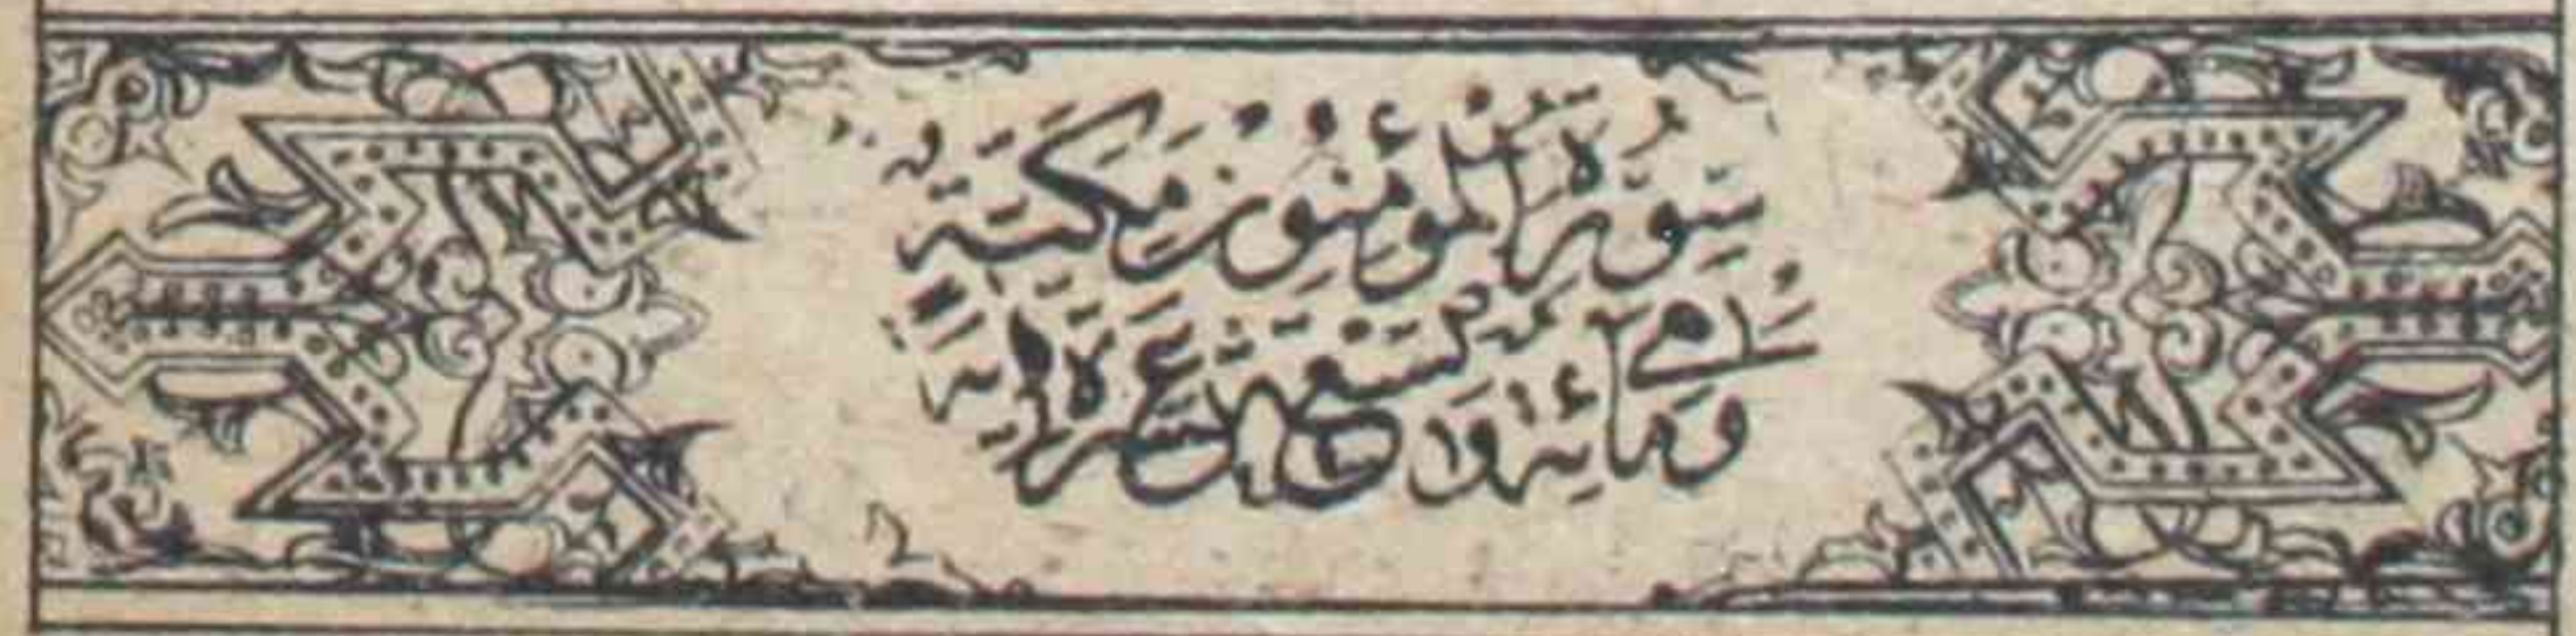 سُورَةُ الْمُؤْمِنُونَ مَكِّيَّةٌ
مائة وتسع عشرة اية